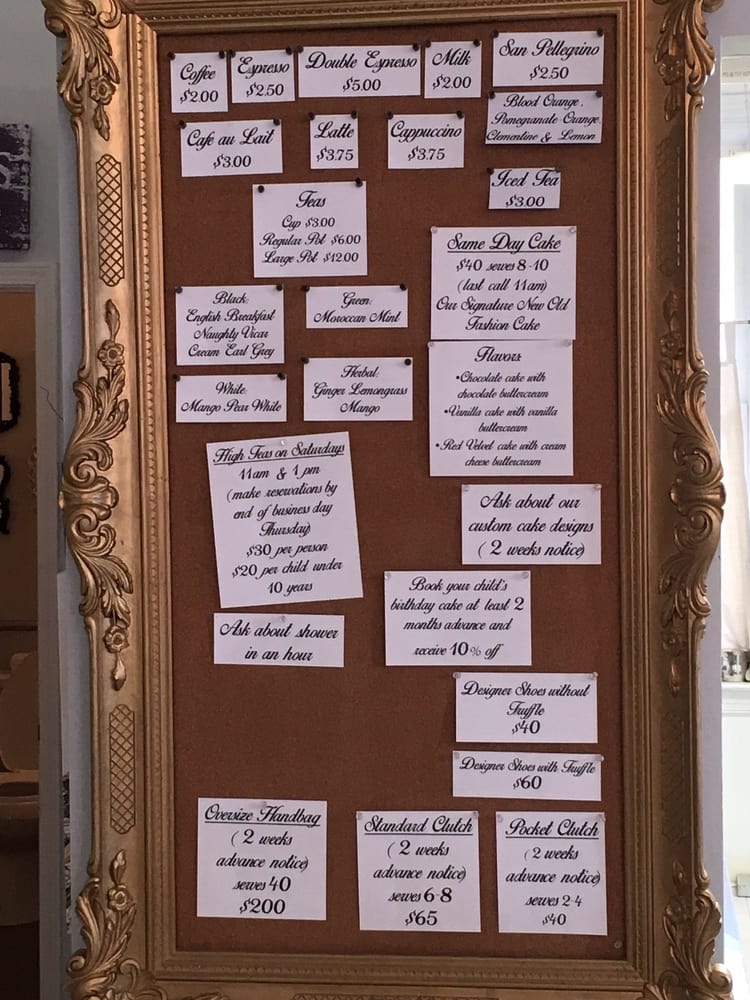 Coffee
$2.00
Espresso
$2.50
Double Espresso
$5.00
Milk
$2.00
San Pellegrino
$2.50
Blood Orange,
Pomegranate Orange,
Clementine & Lemon
Cafe au Lait
$3.00
Latte
$3.75
Cappuccino
$3.75
Iced Tea
$3.00
Teas
Cup $3.00
Regular Pot $6.00
Large Pot $12.00
Same Day Cake
$40 serves 8-10
(last call 11am)
Our Signature New Old
Fashion Cake
Black:
English Breakfast
Naughty Vicar
Cream Earl Grey
Green:
Moroccan Mint
Flavors:
•Chocolate cake with
chocolate buttercream
•Vanilla cake with vanilla
buttercream
•Red Velvet cake with cream
cheese buttercream
White:
Mango Pear White
Herbal:
Ginger Lemongrass
Mango
High Teas on Saturdays
11am & 1 pm
(make reservations by
end of business day
Thursday)
$30 per person
$20 per child under
10 years
Ask about our
custom cake designs
( 2 weeks notice)
Book your child's
birthday cake at least 2
months advance and
receive 10% off
Ask about shower
in an hour
Designer Shoes without
Truffle
$40
Designer Shoes with Truffle
$60
Oversize Handbag
( 2 weeks
advance notice)
serves 40
$200
Standard Clutch
( 2 weeks
advance notice)
serves 6-8
$65
Pocket Clutch
(2 weeks
advance notice)
serves 2-4
$40